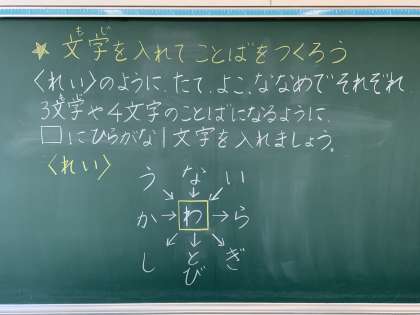 ★文字を入れてことばをつくろう
〈れい〉のように、たて、よこ、ななめでそれぞれ、
3文字や4文字のことばになるように、
□にひらがな1文字を入れましょう。
〈れい〉
う な い
か→わ→ら
し とび ぎ